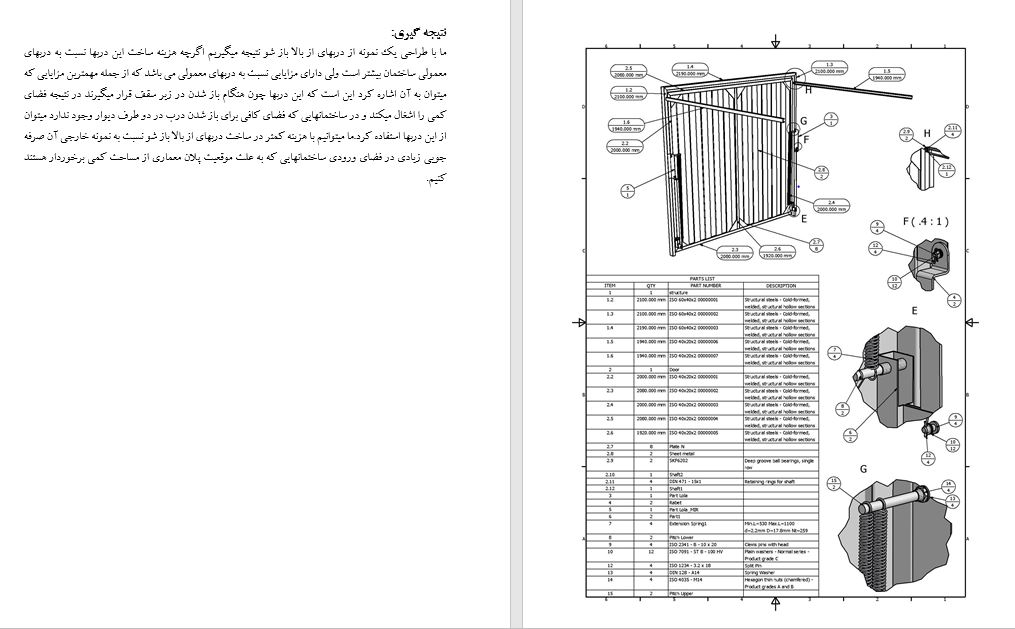 نتیجه گیری:
ما با طراحی یک نمونه از دربهای از بالا باز شو نتیجه میگیریم اگرچه هزینه ساخت این دربها نسبت به دربهای
معمولی ساختمان بیشتر است ولی دارای مزایایی نسبت به دربهای معمولی می باشد که از جمله مهمترین مزایایی که
میتوان به آن اشاره کرد این است که این دربها چون هنگام باز شدن در زیر سقف قرار میگیرند در نتیجه فضای
کمی را اشغال میکند و در ساختمانهایی که فضای کافی برای باز شدن درب در دو طرف دیوار وجود ندارد میتوان
از این دربها استفاده کرد.ما میتوانیم با هزینه کمتر در ساخت دربهای از بالا باز شو نسبت به نمونه خارجی آن صرفه
جویی زیادی در فضای ورودی ساختمانهایی که به علت موقعیت پلان معماری از مساحت کمی برخوردار هستند
کنیم.
6 5 4 3 2 1
2.5 2080.000 mm
1.4 2190.000 mm
1.3 2100.000 mm
1.5 1940.000 mm
H
1.2 2100.000 mm
1.6 1940.000 mm
2.2 2000.000 mm
G
F
3 1
5 1
2.8 2
2.4 2000.000 mm
E
2.3 2080.000 mm
2.6 1920.000 mm
2.7 8
2.9 2
H
2.11 4
2.12 1
F ( .4 : 1 )
9 4
12 4
10 12
4 2
E
7 4
8 2
6 2
9 4
10 12
12 4
G
15 2
14 4
13 4
PARTS LIST
ITEM QTY PART NUMBER DESCRIPTION
1 1 structure
1.2 2100.000 mm ISO 60x40x2 00000001 Structural steels - Cold-formed,
welded, structural hollow sections
1.3 2100.000 mm ISO 60x40x2 00000002 Structural steels - Cold-formed,
welded, structural hollow sections
1.4 2190.000 mm ISO 60x40x2 00000003 Structural steels - Cold-formed,
welded, structural hollow sections
1.5 1940.000 mm ISO 40x20x2 00000006 Structural steels - Cold-formed,
welded, structural hollow sections
1.6 1940.000 mm ISO 40x20x2 00000007 Structural steels - Cold-formed,
welded, structural hollow sections
2 1 Door
2.2 2000.000 mm ISO 40x20x2 00000001 Structural steels - Cold-formed,
welded, structural hollow sections
2.3 2080.000 mm ISO 40x20x2 00000002 Structural steels - Cold-formed,
welded, structural hollow sections
2.4 2000.000 mm ISO 40x20x2 00000003 Structural steels - Cold-formed,
welded, structural hollow sections
2.5 2080.000 mm ISO 40x20x2 00000004 Structural steels - Cold-formed,
welded, structural hollow sections
2.6 1920.000 mm ISO 40x20x2 00000005 Structural steels - Cold-formed,
welded, structural hollow sections
2.7 8 Plate N
2.8 2 Sheet metal
2.9 2 SKF6202 Deep groove ball bearings, single
row
2.10 1 Shaft2
2.11 4 DIN 471 - 15x1 Retaining rings for shaft
2.12 1 Shaft1
3 1 Part Lola
4 2 Rabet
5 1 Part Lola_MIR
6 2 Part1
7 4 Extension Spring1 Min.L=530 Max.L=1100
d=2.2mm D=17.8mm Nt=259
8 2 Pitch Lower
9 4 ISO 2341 - B - 10 x 20 Clevis pins with head
10 12 ISO 7091 - ST 8 - 100 HV Plain washers - Normal series -
Product grade C
12 4 ISO 1234 - 3.2 x 18 Split Pin
13 4 DIN 128 - A14 Spring Washer
14 4 ISO 4035 - M14 Hexagon thin nuts (chamfered) -
Product grades A and B
15 2 Pitch Upper
6 5 4 3 2 1